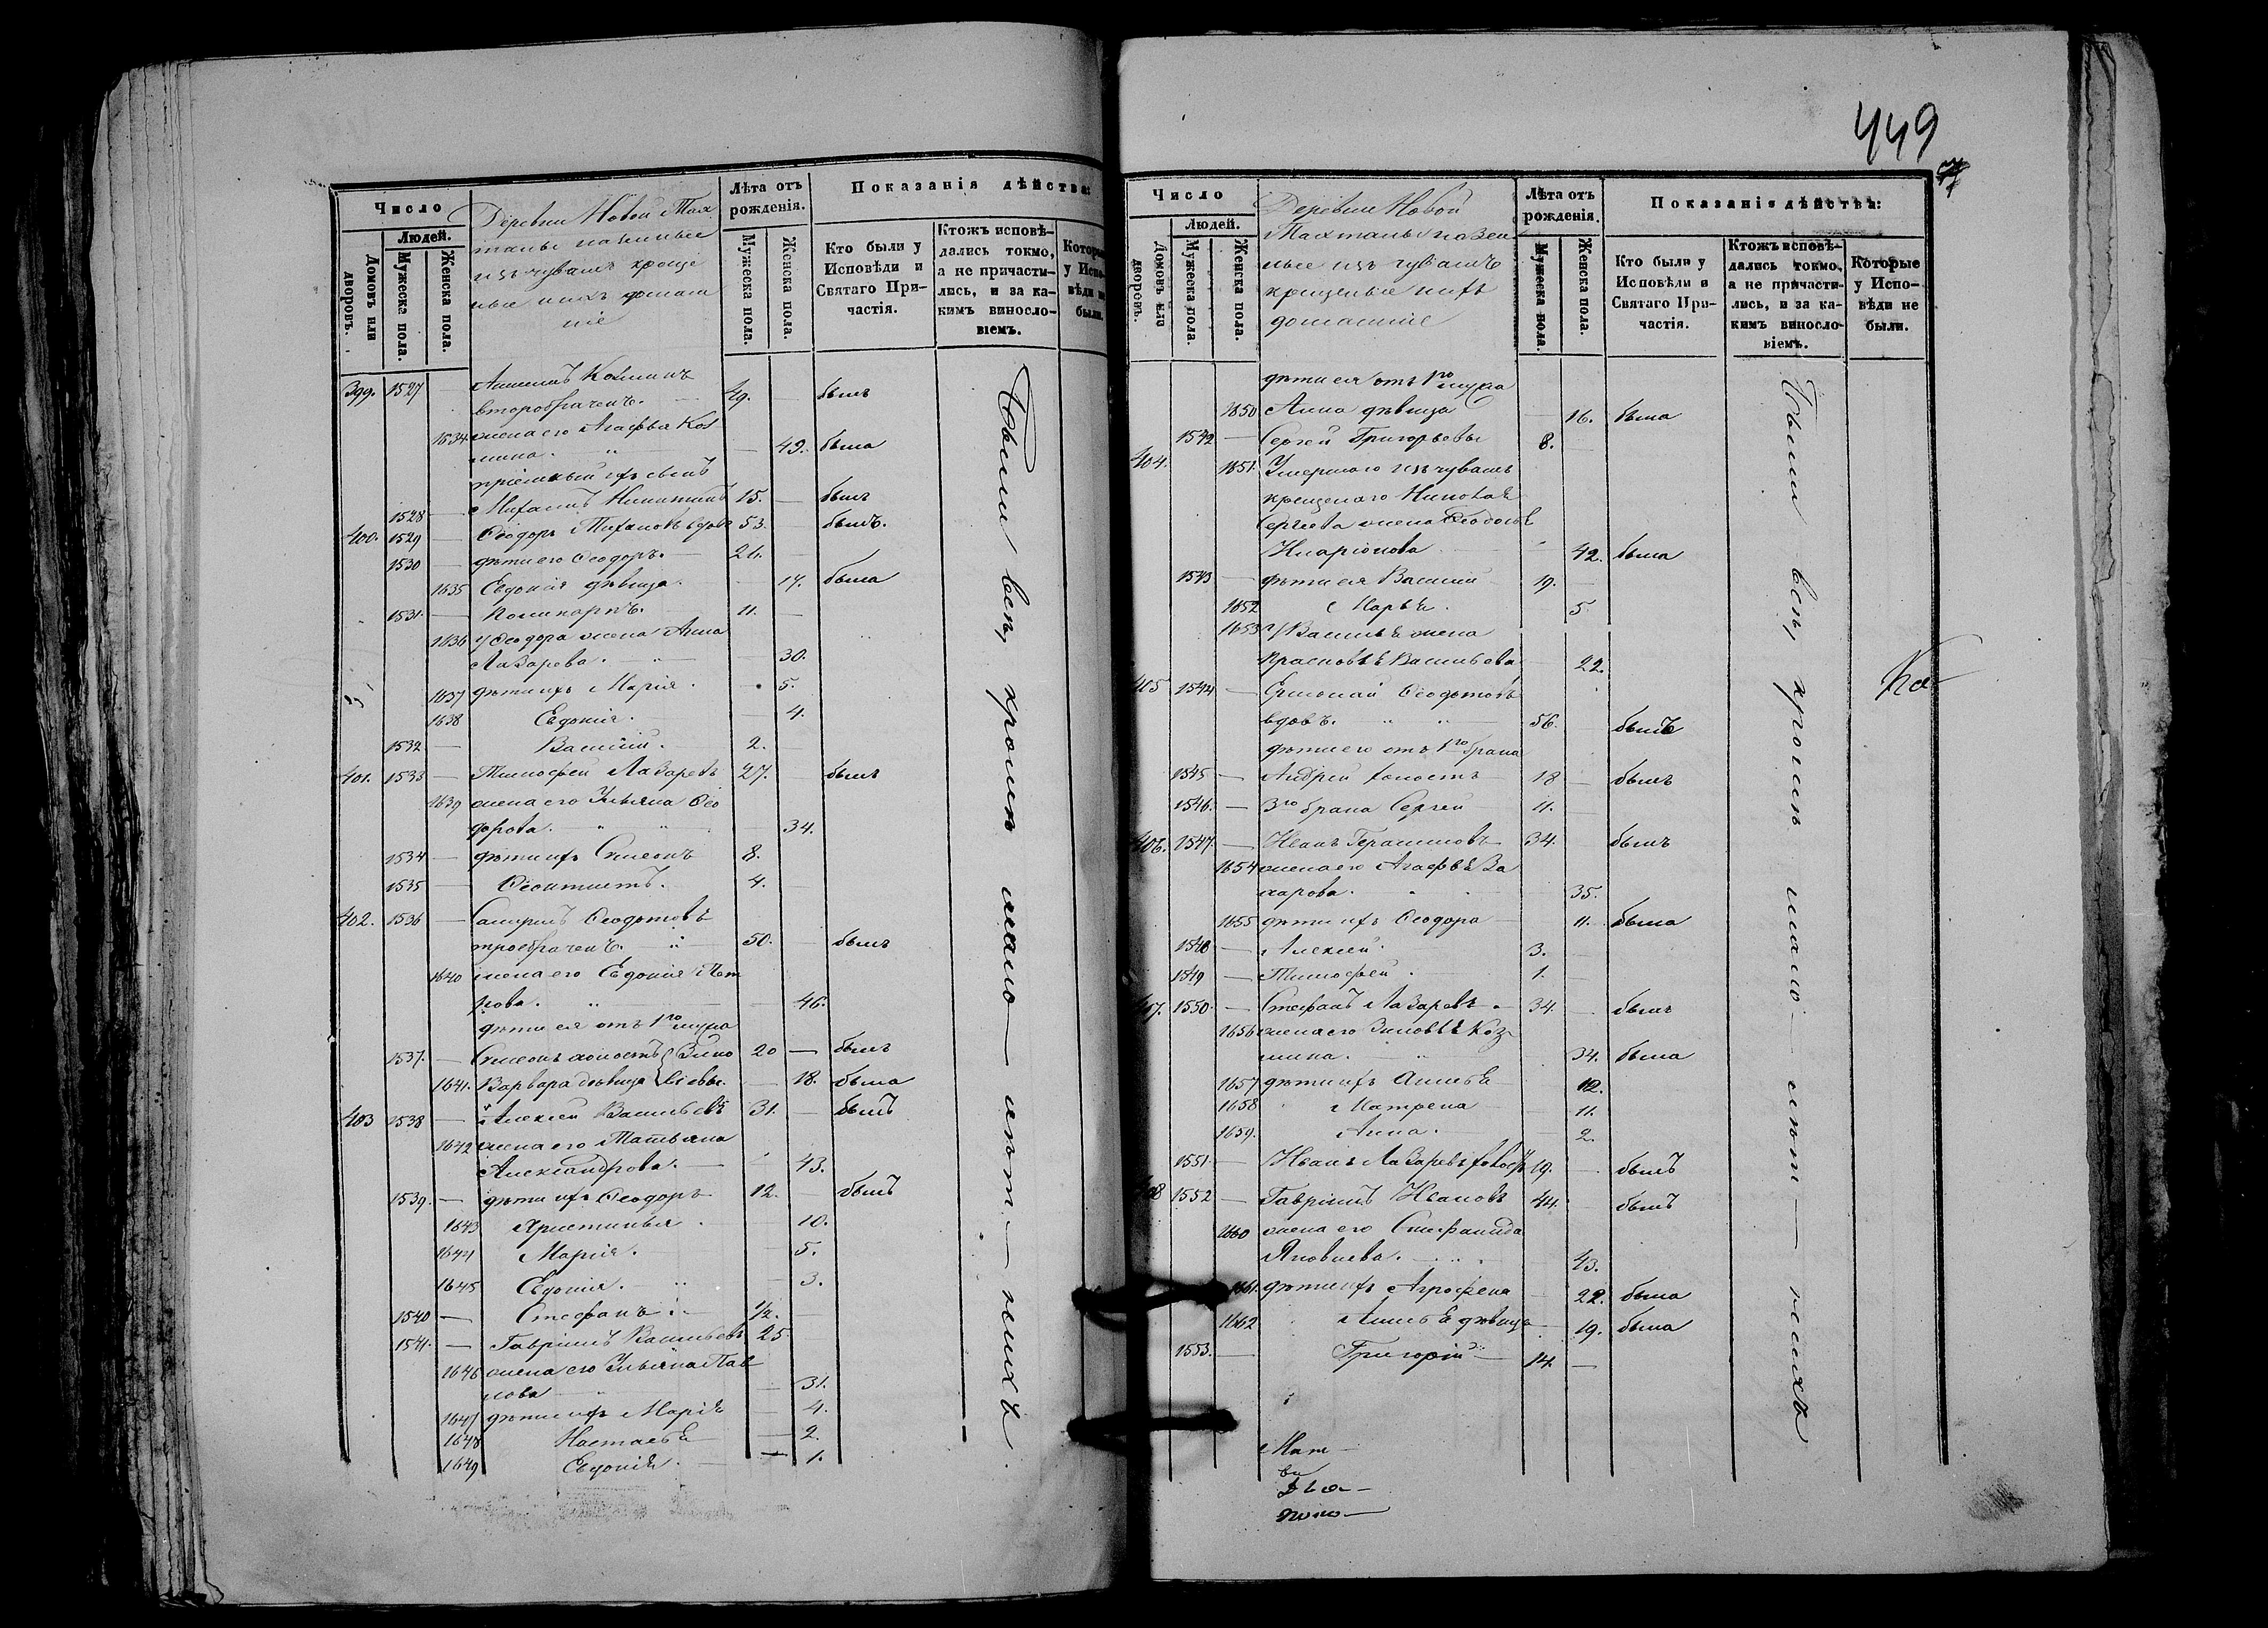 Число
Людей.
Домовъ или дворовъ.
Мужеска пола.
Женска пола.
Деревни Новой Мах
таны казенные
изъ чувашъ креще
ные и ихъ домаш
ніе
Лѣта отъ рожденія.
Мужеска пола.
Женска пола.
Показанія дѣйства:
Кто были у Исповѣди и Святаго Причастія.
Ктожъ исповѣдались токмо, а не причастились, и за какимъ винословіемъ.
Которые у Исповѣди не были.
399. 1527 — Козминъ
второбраченъ. — 49. былъ
1634 жена его Агафья Коз
мина. — 49. была
пріемный ихъ сынъ
1528 Никитинъ 15. — былъ
400. 1529 — Ѳеодоръ вдовъ 53. — былъ.
1530 — дѣти его Ѳеодоръ. — 26.
1635 Евдокія дѣвица — 17. была
1531. — Поликарпъ. 11. —
1636 у Ѳеодора жена Анна
Лазарева. — 30.
1637 дѣти ихъ Марія. — 5.
1638 Евдокія. — 4.
1532 — Василій. 2.
401. 1533 — Тимофей Лазаревъ 27. былъ
1639 жена его Ульяна Ѳео
дорова. — 34.
1534 — дѣти ихъ Симеонъ 8.
1535 — Ѳеоктистъ. 4.
402. 1536 — Ѳедотовъ
троебраченъ. 50. былъ
1640 жена его Евдокія Пет
рова. — 46.
дѣти ея отъ 1го мужа
1537. — Симеонъ холостъ } Зино 20 — былъ
1641. Варвара дѣвица } вьевы. — 18. была
403 1538 — Алексей Васильевъ 31. — былъ
1642 жена его Татьяна
Александрова. — 43.
1539. — дѣти ихъ Ѳеодоръ 12. — былъ
1643 Христинья. 10.
1644 Марія. 5.
1645 Евдокія. 3.
1540 — Стефанъ ½.
1541. — Гавріилъ Васильевъ 25
1646 жена его Ульяна Пав
лова — 31.
1647 дѣти ихъ Марія — 4.
1648 Настасья — 2.
1649 Евдокія. — 1.
Были всѣ, кромѣ мало-лѣт-нихъ
449
Число
Людей.
Домовъ или дворовъ.
Мужеска пола.
Женска пола.
Деревни Новой
Махтаны казен
ные изъ чувашъ
крещеные и ихъ
домашніе
Лѣта отъ рожденія.
Мужеска пола.
Женска пола.
Показанія дѣйства:
Кто были у Исповѣди и Святаго Причастія.
Ктожъ исповѣдались токмо, а не причастились, и за какимъ винословіемъ.
Которые у Исповѣди не были.
дѣти ея отъ 1го мужа
1650 Анна дѣвица — 16. была
1542 — Сергей Григорьевы 8.
404. 1651. Умершаго изъ чувашъ
крещенаго Николая
Сергеева жена Ѳеодосья
Иларіонова 42. была
1543 — дѣти ея Василій 19.
1652 Марья. 5.
1653 у Василья жена
Васильева 22.
405 1544 — Ѳедотовъ
вдовъ. 56. былъ
дѣти его отъ 1го брака
1545 — Андрей холостъ 18 — былъ
1546. — 3го брака Сергей 11.
406. 1547. — Иванъ Герасимовъ 34. былъ
1654 жена его Агафья За
харова. 35.
1655 дѣти ихъ Ѳеодора — 11. была
1548 — Алексей. 3.
1549 — Тимофей. 1.
407. 1550. — Стефанъ Лазаревъ 34. — былъ
1656 жена его Зиновья Коз
мина. 34. была
1657 дѣти ихъ 12.
1658 Матрена 11.
1659. Анна. 2.
1551. — Иванъ Лазаревъ 19. — былъ
408 1552 — Гавріилъ Ивановъ 44. былъ
1660 жена его Стефанида
Яковлева. 43.
1661. дѣти ихъ Агрофена 22. была
1662 дѣвица — 19. была
1553. — Григорій — 14. —
Были всѣ, кромѣ мало-лѣт-нихъ
Ко-
Мат-
ви
Дья-